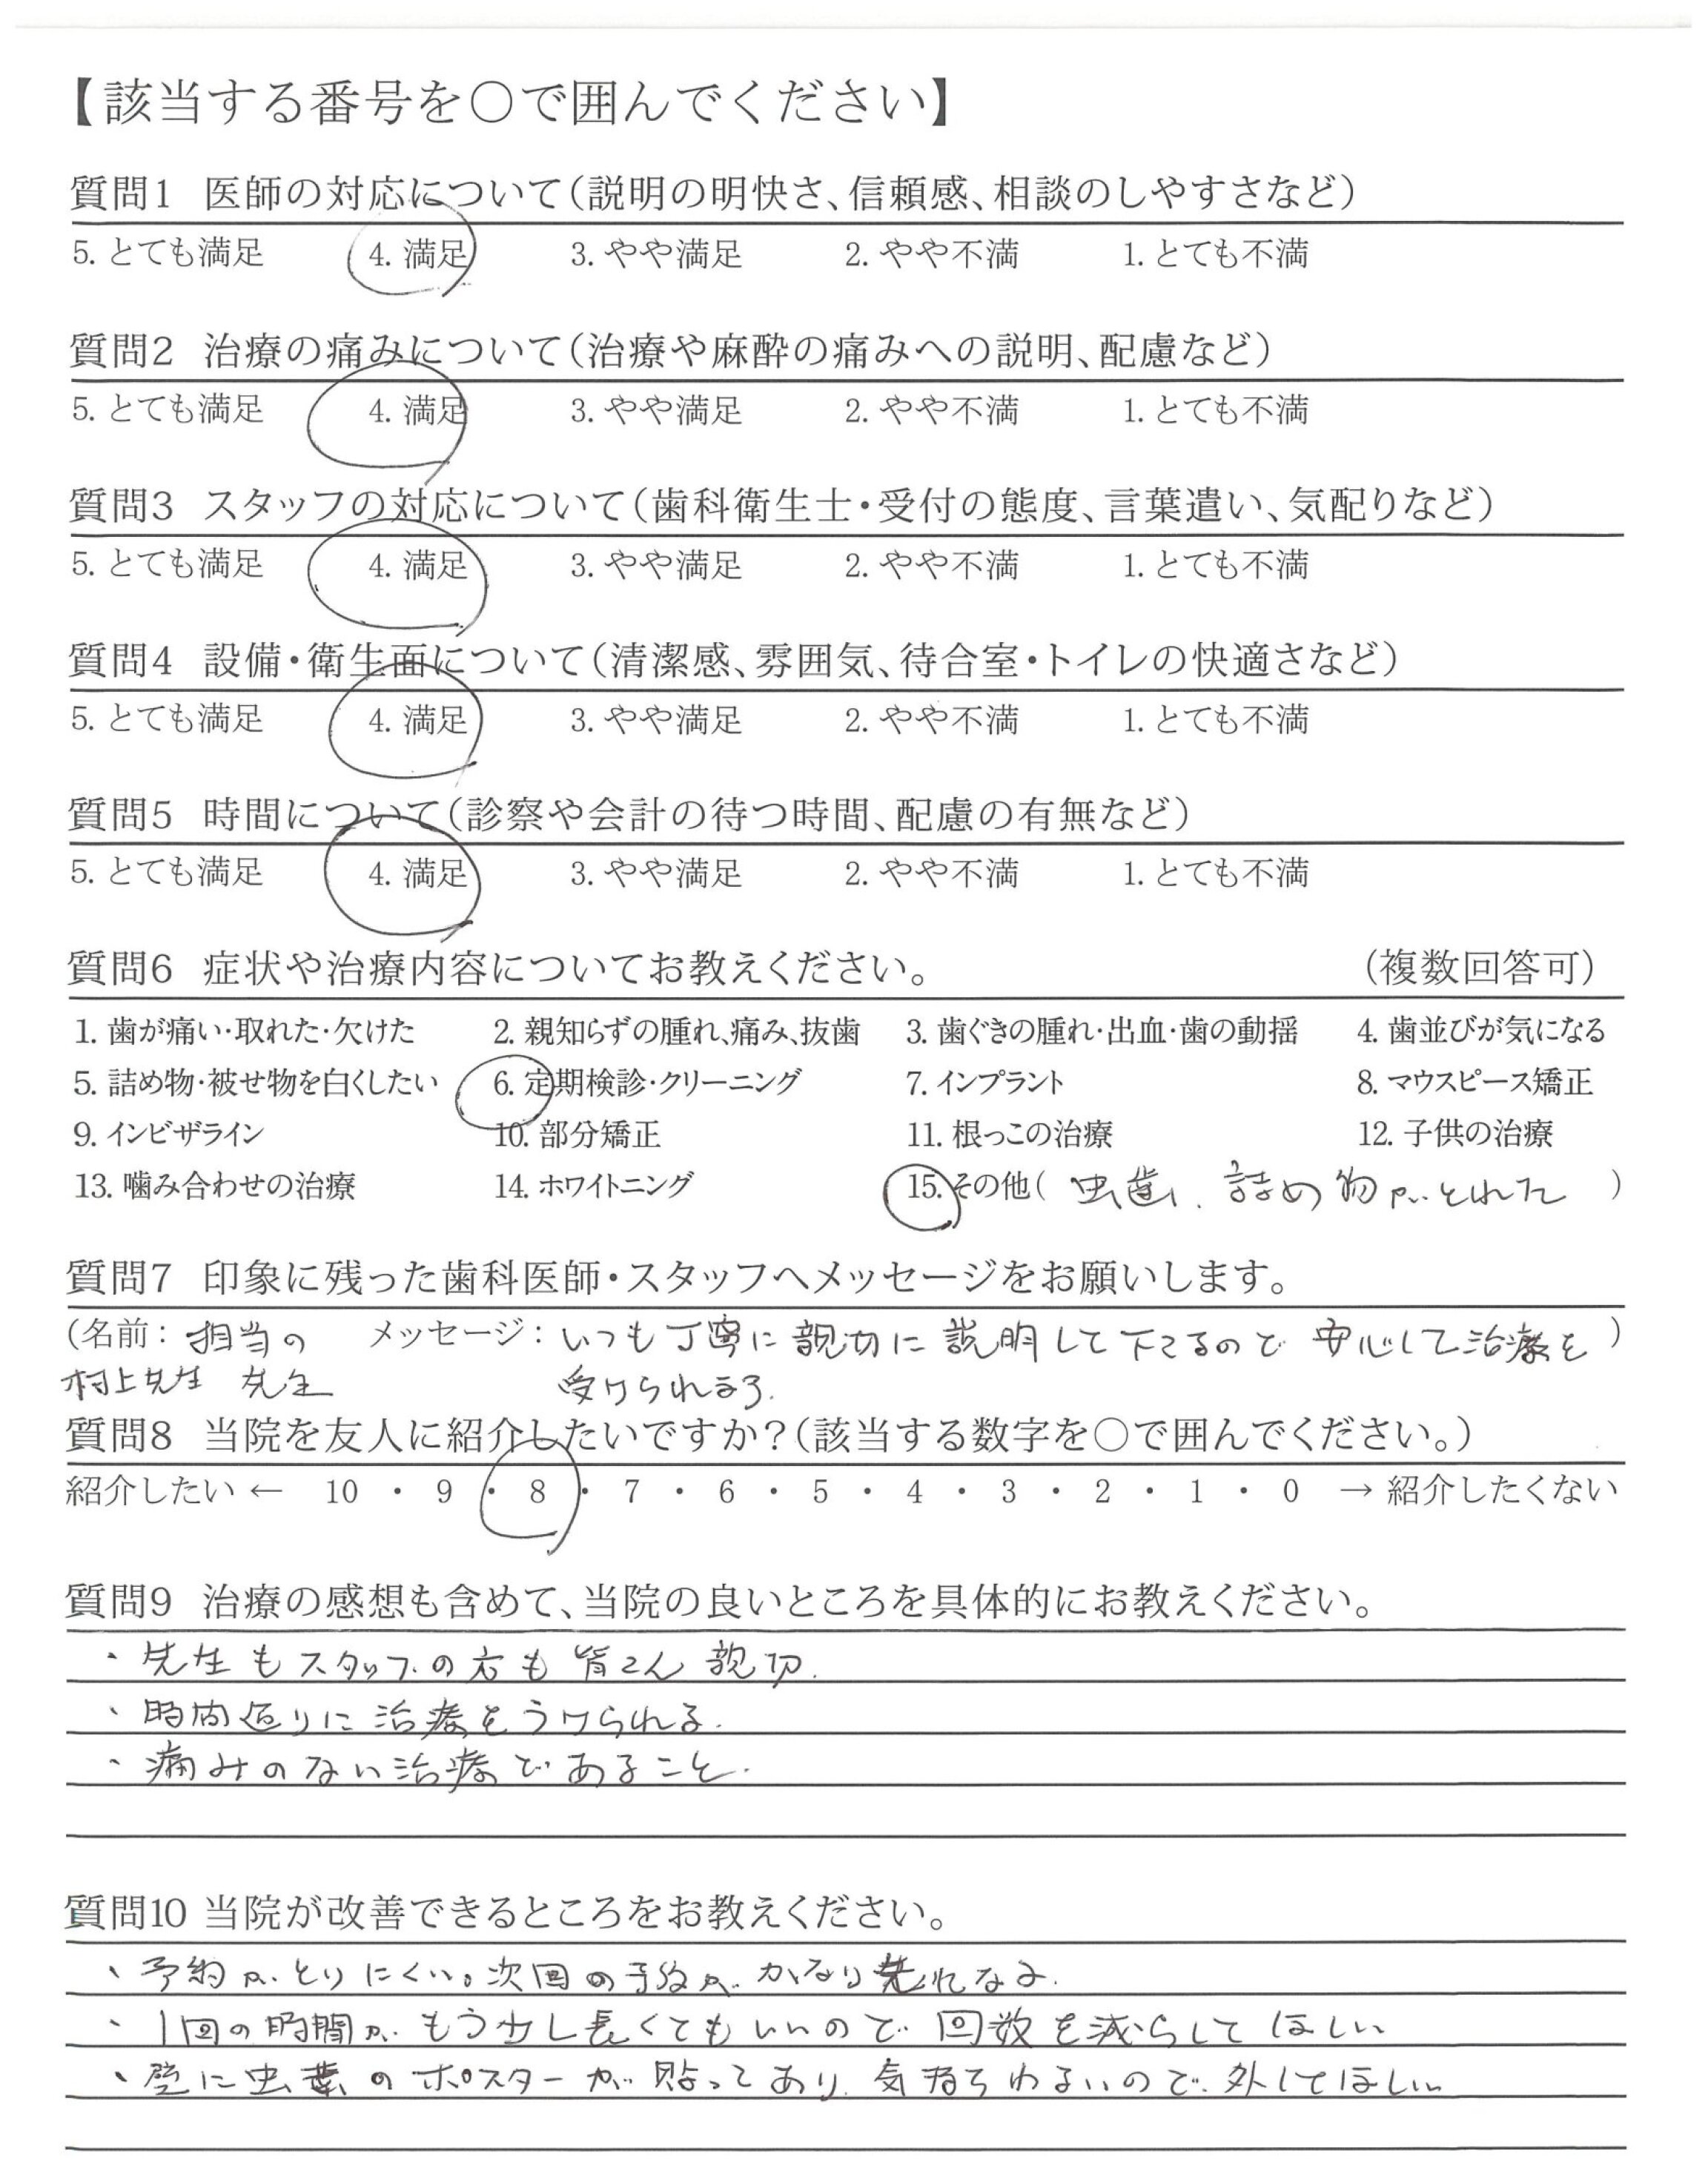 【該当する番号を○で囲んでください】
質問1 医師の対応について(説明の明快さ、信頼感、相談のしやすさなど)
5. とても満足 4. 満足 3. やや満足 2. やや不満 1. とても不満
質問2 治療の痛みについて(治療や麻酔の痛みへの説明、配慮など)
5. とても満足 4. 満足 3. やや満足 2. やや不満 1. とても不満
質問3 スタッフの対応について(歯科衛生士・受付の態度、言葉遣い、気配りなど)
5. とても満足 4. 満足 3. やや満足 2. やや不満 1. とても不満
質問4 設備・衛生面について(清潔感、雰囲気、待合室・トイレの快適さなど)
5. とても満足 4. 満足 3. やや満足 2. やや不満 1. とても不満
質問5 時間について(診察や会計の待つ時間、配慮の有無など)
5. とても満足 4. 満足 3. やや満足 2. やや不満 1. とても不満
質問6 症状や治療内容についてお教えください。 (複数回答可)
1. 歯が痛い・取れた・欠けた 2. 親知らずの腫れ、痛み、抜歯 3. 歯ぐきの腫れ・出血・歯の動揺 4. 歯並びが気になる
5. 詰め物・被せ物を白くしたい 6. 定期検診・クリーニング 7. インプラント 8. マウスピース矯正
9. インビザライン 10. 部分矯正 11. 根っこの治療 12. 子供の治療
13. 噛み合わせの治療 14. ホワイトニング 15. その他( 虫歯、詰め物がとれた )
質問7 印象に残った歯科医師・スタッフへメッセージをお願いします。
(名前: 担当の メッセージ: いつも丁寧に親切に説明して下さるので安心して治療を )
村上先生 先生 受けられます.
質問8 当院を友人に紹介したいですか?(該当する数字を○で囲んでください。)
紹介したい ← 10 ・ 9 ・ 8 ・ 7 ・ 6 ・ 5 ・ 4 ・ 3 ・ 2 ・ 1 ・ 0 → 紹介したくない
質問9 治療の感想も含めて、当院の良いところを具体的にお教えください。
・先生もスタッフの方も皆さん親切.
・時間通りに治療をうけられる.
・痛みのない治療であること.
質問10 当院が改善できるところをお教えください。
・予約がとりにくい。次回の予約がかなり先になる.
・1回の時間がもう少し長くてもいいので回数を減らしてほしい
・壁に虫歯のポスターが貼ってあり、気持ちわるいので、外してほしい